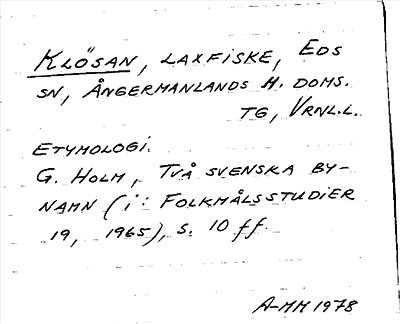 KLÖSAN, LAXFISKE, EDS
SN, ÅNGERMANLANDS H. DOMS.
TG, VRNL.L.
ETYMOLOGI.
G. HOLM, TVÅ SVENSKA BY-
NAMN (I: FOLKMÅLSSTUDIER
19, 1965), S. 10 ff.
A-MM 1978